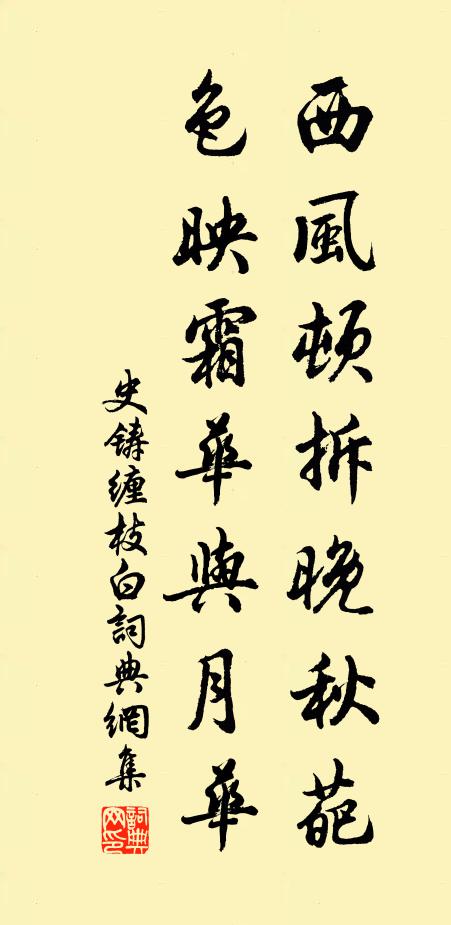 西風頓拆晚秋葩
色映霜華與月華
史鑄缠枝白詞典網集
詞典網印